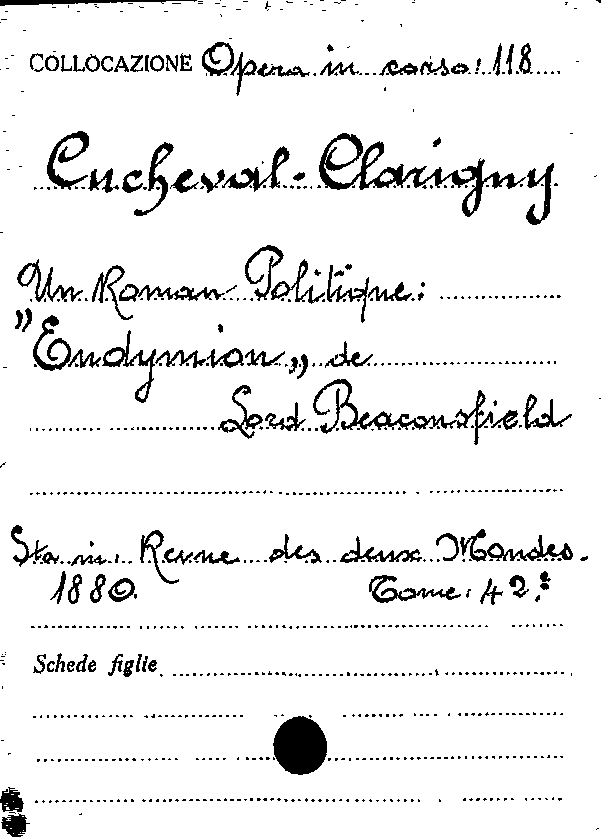 COLLOCAZIONE Opera in corso: 118
Cucheval-Clarigny
Un Roman Politique:
"Endymion„ de
Lord Beaconsfield
Sta in: Revue des deux Mondes.
1880. Tome: 42:
Schede figlie